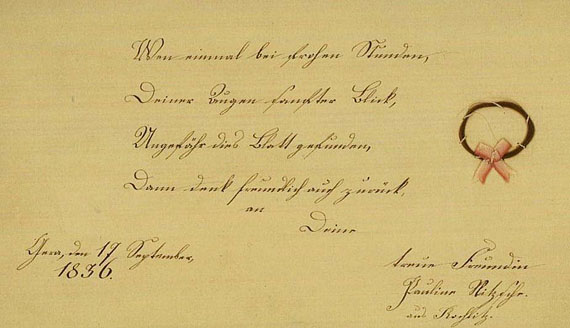 Wen einmal bei frohen Stunden,
Deiner Augen sanfter Blick,
Ungefähr dies Blatt gefunden,
Dann denk freundlich auch zurück.
an
Deine
Gera, den 17 September,
1836.
treue Freundin
Pauline Nitzsche.
aus Rochlitz.